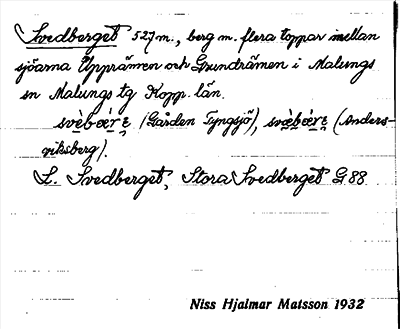 Svedberget 527 m., berg m. flera toppar mellan
sjöarna Upprämen och Grundrämen i Malungs
sn Malungs tg Kopp. län.
(Gården Tyngsjö), (Anders-
viksberg).
L. Svedberget, Stora Svedberget G 88
Niss Hjalmar Matsson 1932